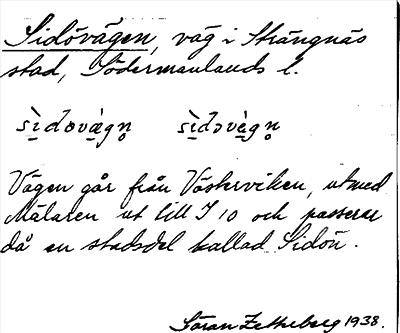 Sidövägen, väg i Strängnäs
stad, Södermanlands l.
sìdovà̤gn̥ sìdɔvè̤gn̥
Vägen går från Västerviken, utmed
Mälaren ut till I 10 och passerar
då en stadsdel kallad Sidön.
Göran Zetterberg 1938.